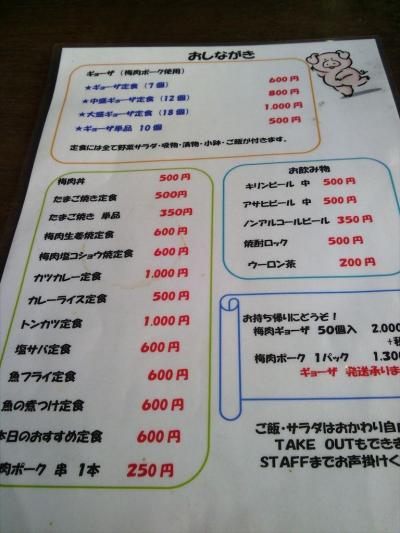 おしながき
ギョーザ (梅肉ポーク使用)
★ギョーザ定食 (7個) 600円
★中盛ギョーザ定食 (12個) 800円
★大盛ギョーザ定食 (18個) 1.000円
★ギョーザ単品 10個 500円
定食には全て野菜サラダ・吸物・漬物・小鉢・ご飯が付きます。
梅肉丼 500円
たまご焼き定食 500円
たまご焼き 単品 350円
梅肉生姜焼定食 600円
梅肉塩コショウ焼定食 600円
カツカレー定食 1.000円
カレーライス定食 500円
トンカツ定食 1.000円
塩サバ定食 600円
魚フライ定食 600円
魚の煮つけ定食 600円
本日のおすすめ定食 600円
肉ポーク 串 1本 250円
お飲み物
キリンビール 中 500円
アサヒビール 中 500円
ノンアルコールビール 350円
焼酎ロック 500円
ウーロン茶 200円
お持ち帰りにどうぞ!
梅肉ギョーザ 50個入 2.000
+税
梅肉ポーク 1パック 1.300
ギョーザ 発送承りま
ご飯・サラダはおかわり自
TAKE OUTもでき
STAFFまでお声掛けく